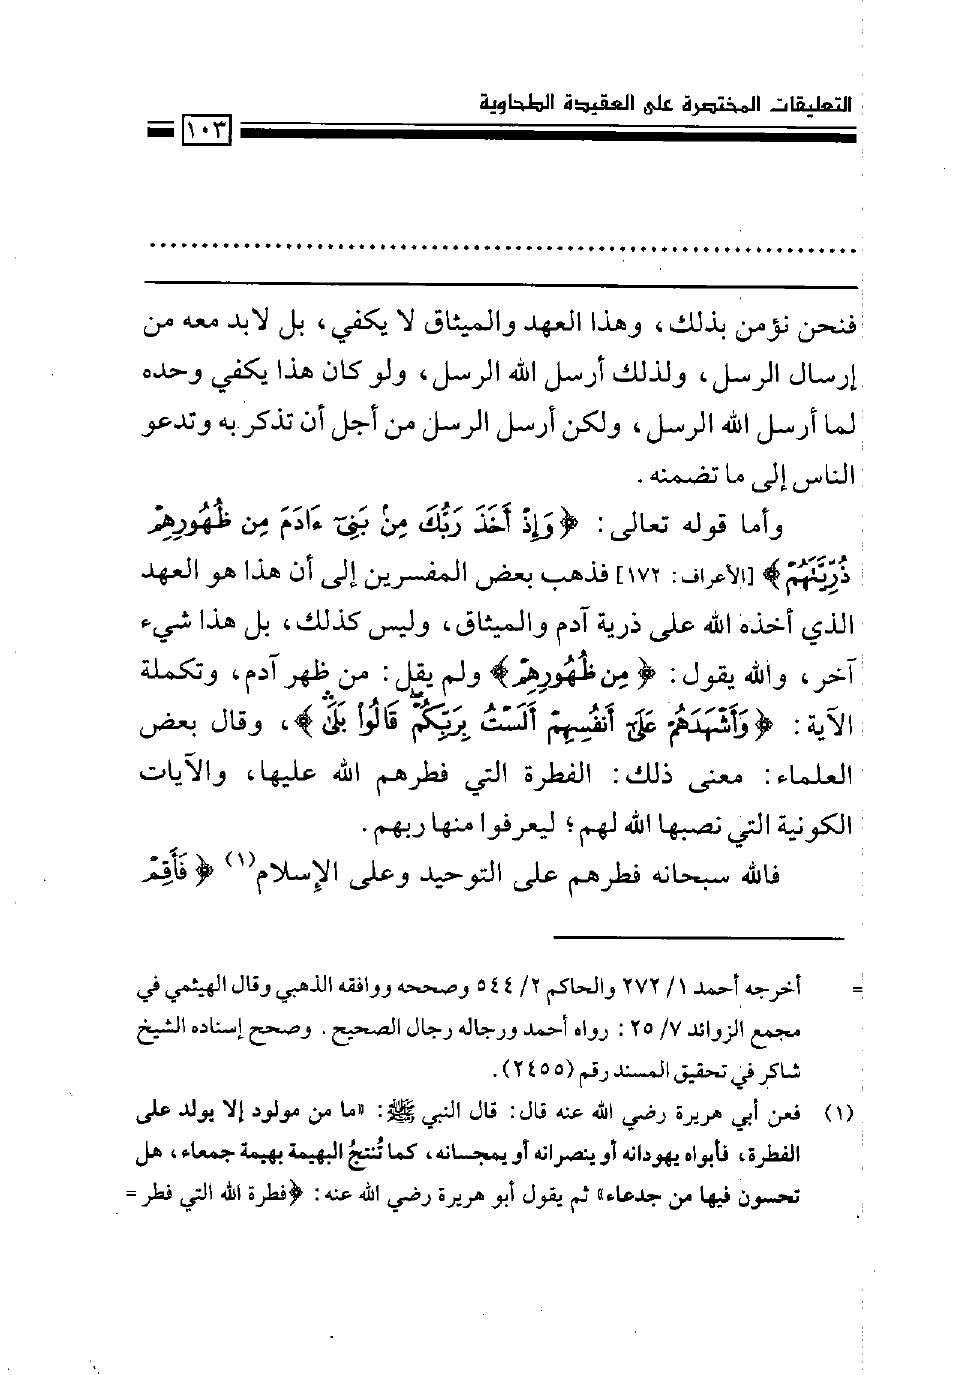 التعليقات المختصرة على العقيدة الطحاوية
١٠٣
فنحن نؤمن بذلك، وهذا العهد والميثاق لا يكفي، بل لابد معه من
إرسال الرسل، ولذلك أرسل الله الرسل، ولو كان هذا يكفي وحده
لما أرسل الله الرسل، ولكن أرسل الرسل من أجل أن تذكر به وتدعو
الناس إلى ما تضمنه.
وأما قوله تعالى: ﴿وَإِذْ أَخَذَ رَبُّكَ مِنْ بَنِىٓ ءَادَمَ مِن ظُهُورِهِمْ
ذُرِّيَّتَهُمْ﴾ [الأعراف: ١٧٢] فذهب بعض المفسرين إلى أن هذا هو العهد
الذي أخذه الله على ذرية آدم والميثاق، وليس كذلك، بل هذا شيء
آخر، والله يقول: ﴿مِن ظُهُورِهِمْ﴾ ولم يقل: من ظهر آدم، وتكملة
الآية: ﴿وَأَشْهَدَهُمْ عَلَىٰٓ أَنفُسِهِمْ أَلَسْتُ بِرَبِّكُمْ ۖ قَالُوا۟ بَلَىٰ ۛ﴾، وقال بعض
العلماء: معنى ذلك: الفطرة التي فطرهم الله عليها، والآيات
الكونية التي نصبها الله لهم؛ ليعرفوا منها ربهم.
فالله سبحانه فطرهم على التوحيد وعلى الإسلام(١) ﴿فَأَقِمْ
= أخرجه أحمد ١/ ٢٧٢ والحاكم ٢/ ٥٤٤ وصححه ووافقه الذهبي وقال الهيثمي في
مجمع الزوائد ٧/ ٢٥: رواه أحمد ورجاله رجال الصحيح. وصحح إسناده الشيخ
شاكر في تحقيق المسند رقم (٢٤٥٥).
(١) فعن أبي هريرة رضي الله عنه قال: قال النبي ﷺ: «ما من مولود إلا يولد على
الفطرة، فأبواه يهودانه أو ينصرانه أو يمجسانه، كما تُنتجُ البهيمة بهيمة جمعاء، هل
تحسون فيها من جدعاء» ثم يقول أبو هريرة رضي الله عنه: ﴿فطرة الله التي فطر =